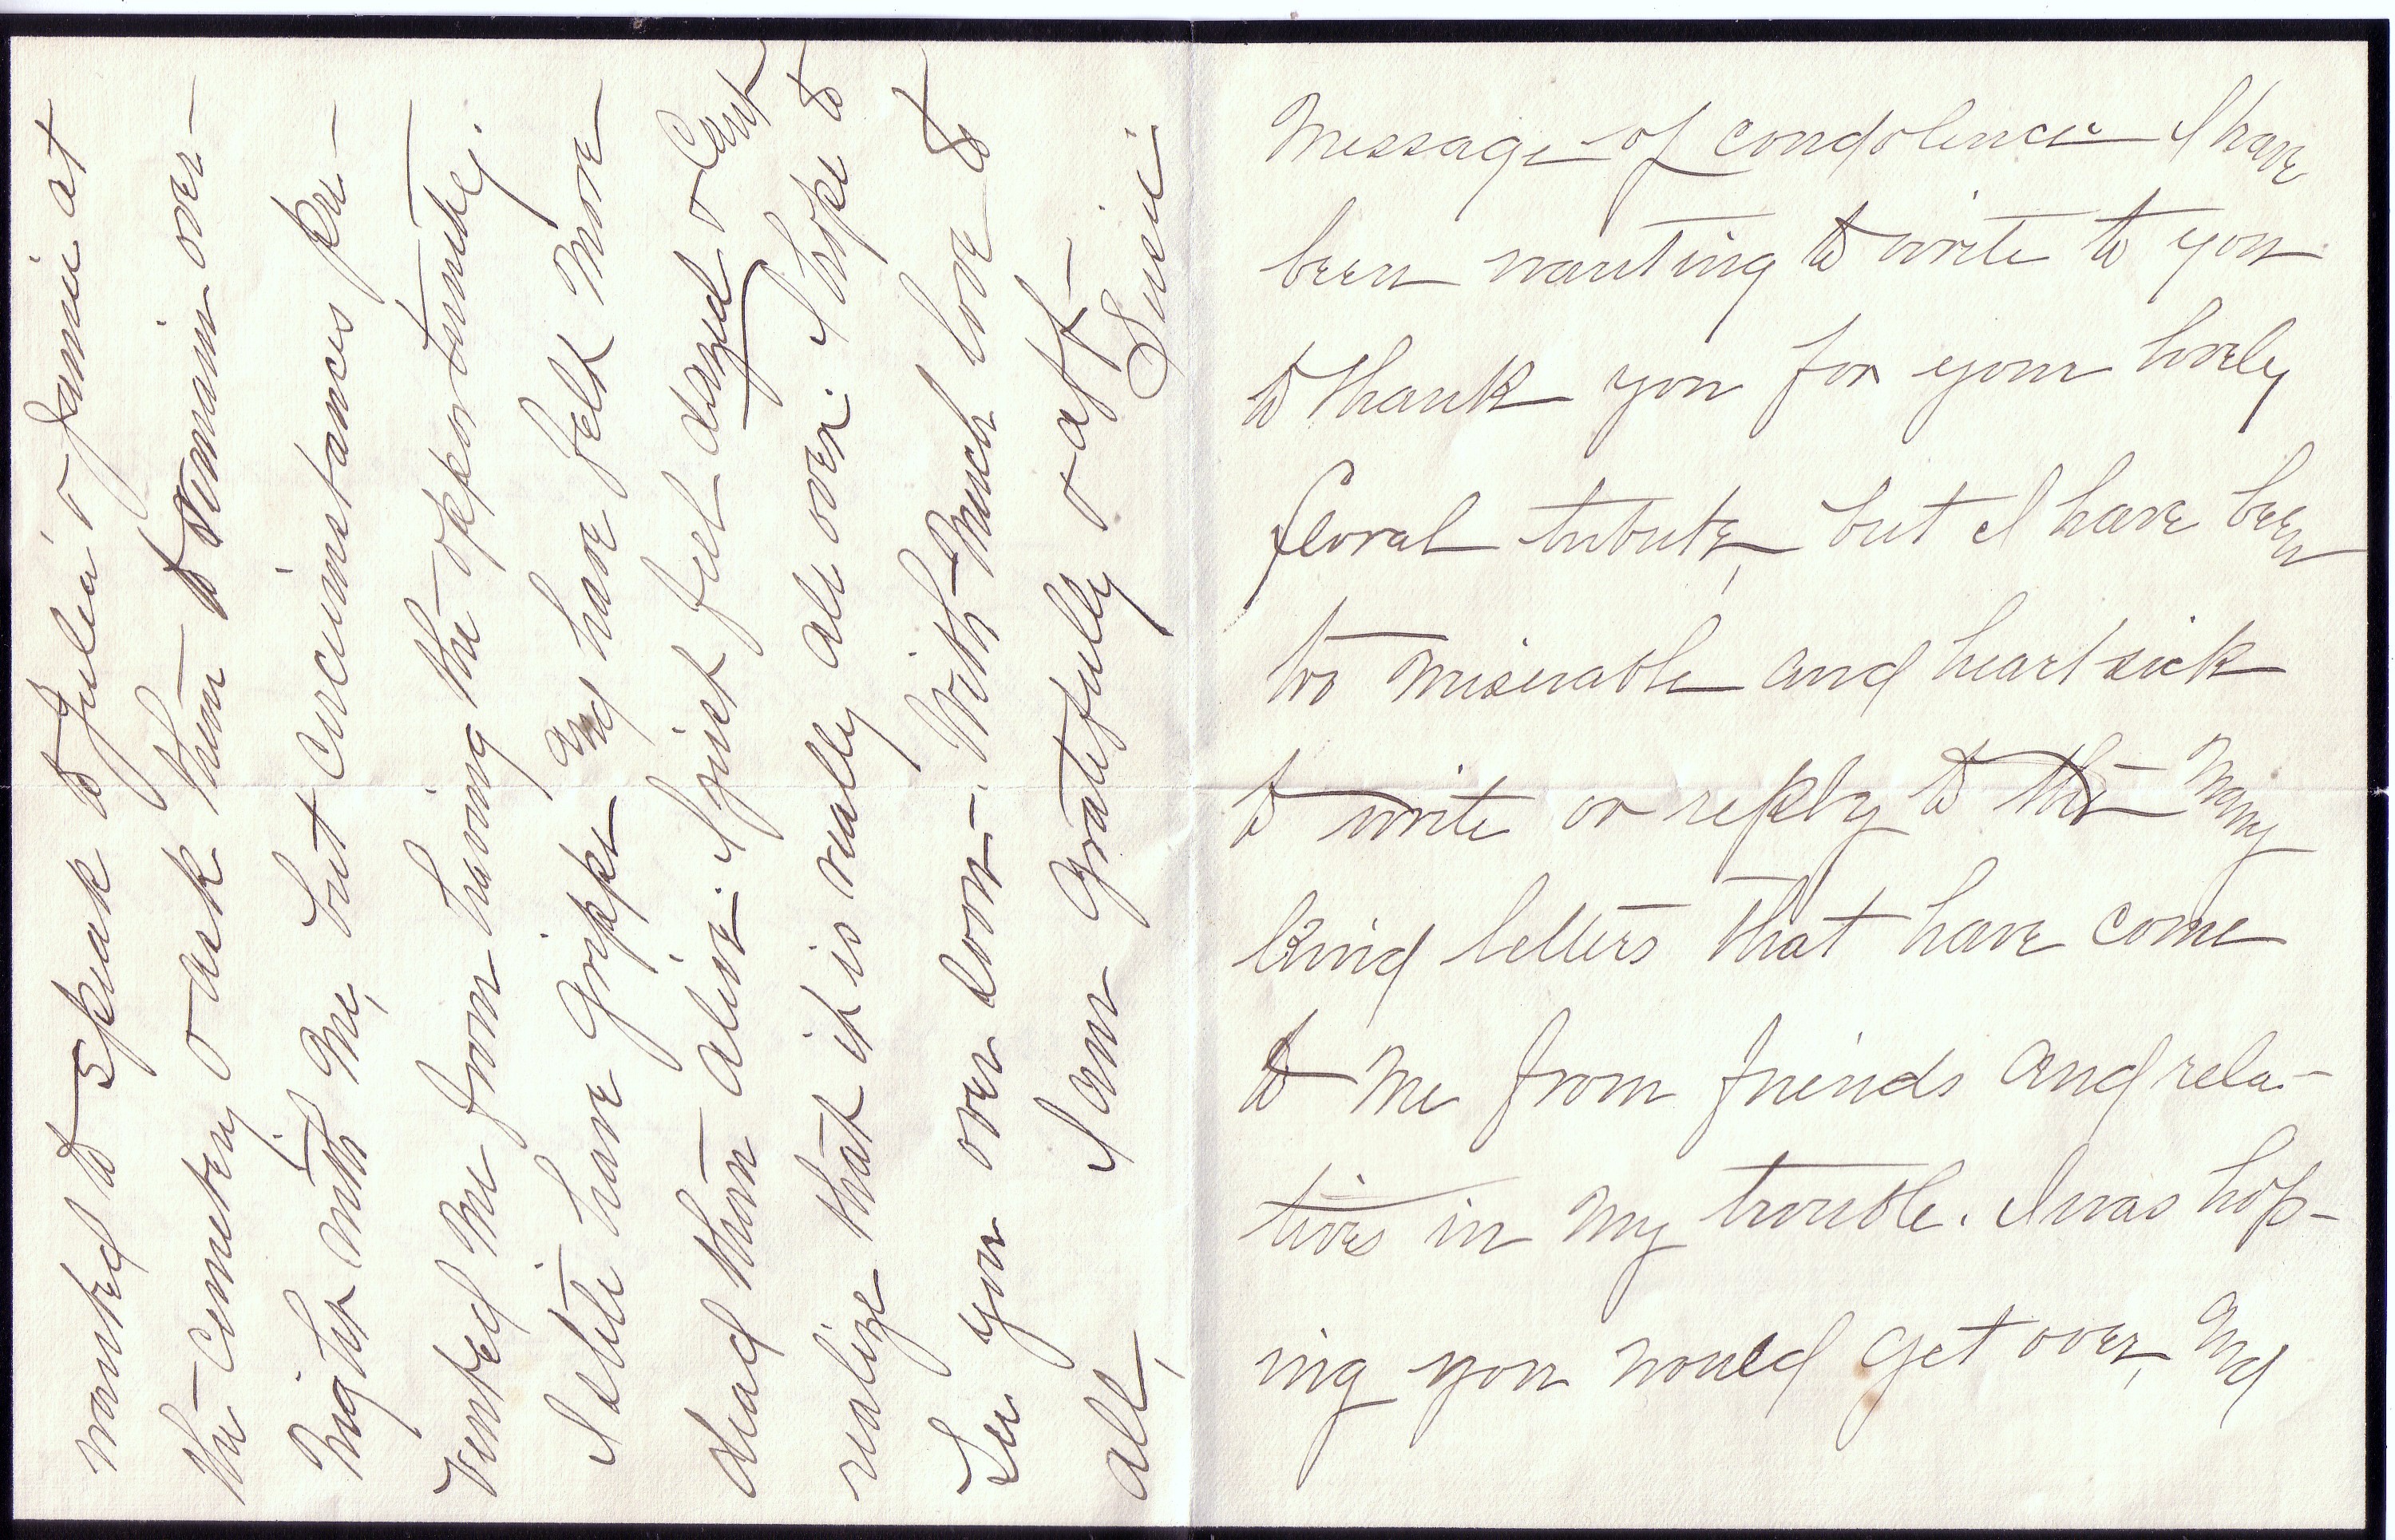 Message of condolence I have
been wanting to write to you
to thank you for your lovely
floral tribute, but I have been
too miserable and heart sick
to write or reply to the many
kind letters that have come
to me from friends and rela-
tives in my trouble. I was hop-
ing you would get over, and
wanted to speak to Julia & Jamie at
the Cemetery & ask them to remain over-
night with me, but circumstances pre-
vented me from having the opportunity.
I still have Grippe and have felt more
dead than alive. I just feel dazed & cant
realize that it is really all over. I hope to
See you over soon. With much love to
all, I am gratefully & aff-
Susie.